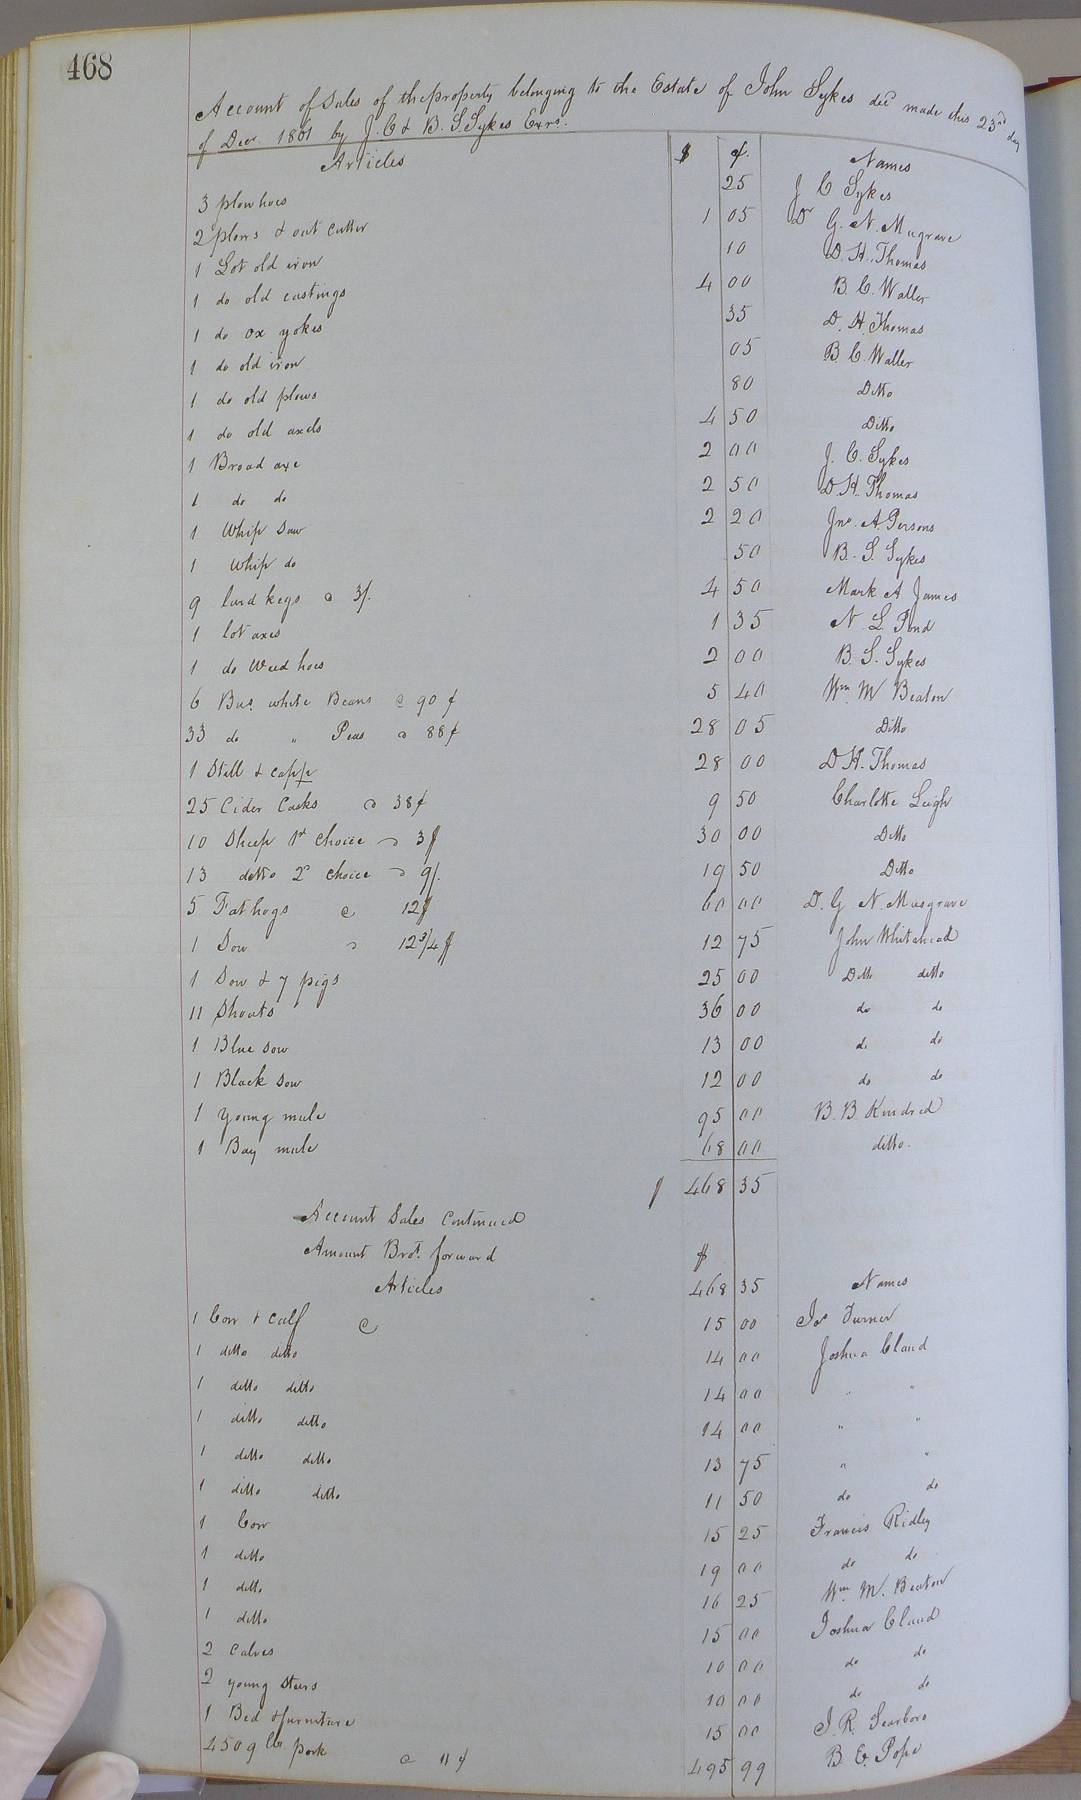 468
Account of Sales of the property belonging to the Estate of John Sykes decd made this 23rd day
of Decr 1861 by J. C & B. S. Sykes Exrs.
Articles $ ¢ Names
3 plow hoes 25 J C Sykes
2 plows & out cutter 1 05 Dr G. N. Musgrave
1 Lot old iron 10 D. H. Thomas
1 do old castings 4 00 B. C. Waller
1 do ox yokes 35 D. H. Thomas
1 do old iron 05 B. C. Waller
1 do old plows 80 Ditto
1 do old axels 4 50 Ditto
1 Broad axe 2 00 J. C. Sykes
1 do do 2 50 D. H. Thomas
1 Whip Saw 2 20 Jno. A. Persons
1 Whip do 50 B. S. Sykes
9 lard kegs @ 3/. 4 50 Mark A James
1 lot axes 1 35 N. L. Pond
1 do Weed hoes 2 00 B. S. Sykes
6 Bus. white Beans @ 90 ¢ 5 40 Wm. M Beaton
33 do " Peas @ 88 ¢ 28 05 Ditto
1 Still & capp 28 00 D. H. Thomas
25 Cider Casks @ 38 ¢ 9 50 Charlotte Leigh
10 Sheep 1st choice @ 3$ 30 00 Ditto
13 ditto 2d choice @ 9/. 19 50 Ditto
5 Fat hogs @ 12$ 60 00 D. G. N. Musgrave
1 Sow @ 12 3/4 $ 12 75 John Whitehead
1 Sow & 7 pigs 25 00 Ditto ditto
11 Shoats 36 00 do do
1 Blue Sow 13 00 do do
1 Black Sow 12 00 do do
1 young mule 95 00 B. B. Kindred
1 Bay mule 68 00 ditto.
$ 468 35
Account Sales Continued
Amount Brot. forward $
Articles 468 35 Names
1 Cow & calf @ 15 00 Jos Turner
1 ditto ditto 14 00 Joshua Claud
1 ditto ditto 14 00 " "
1 ditto ditto 14 00 " "
1 ditto ditto 13 75 " "
1 ditto ditto 11 50 do do
1 Cow 15 25 Francis Ridley
1 ditto 19 00 do do
1 ditto 16 25 Wm. M. Beaton
1 ditto 15 00 Joshua Claud
2 Calves 10 00 do do
2 young Steers 10 00 do do
1 Bed & furniture 15 00 J. R. Scarboro
4509 lbs pork @ 11 ¢ 495 99 B. E. Pope